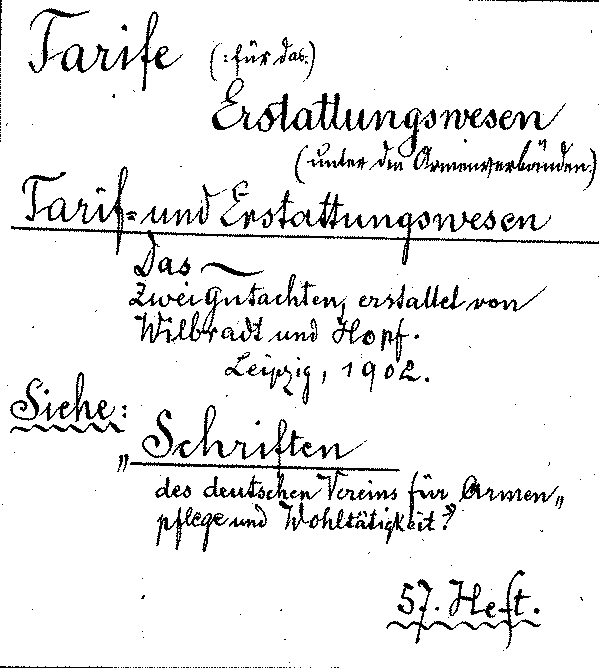 Tarife (: für das:)
Erstattungswesen
(unter den Armenverbänden.)
Tarif- und Erstattungswesen
Das ~
Zwei Gutachten, erstattet von
Wilbradt und Hopf.
Leipzig, 1902.
Siehe:
„Schriften
des deutschen Vereins für Armen„
pflege und Wohltätigkeit."
57. Heft.